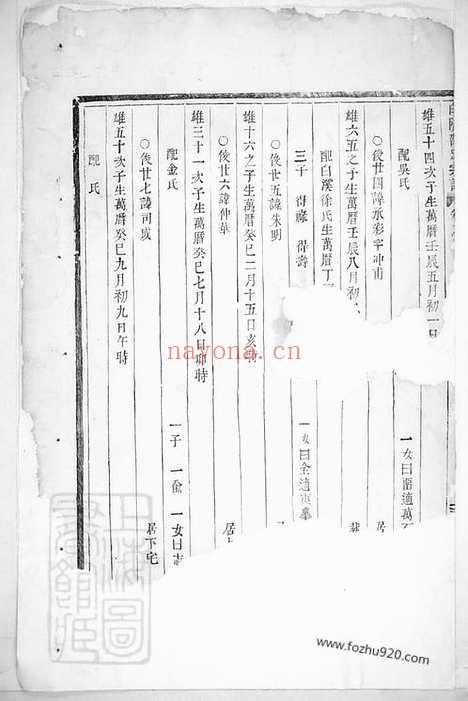 雄五十四次子生萬曆壬辰五月初一日
配吳氏
一女曰
適萬
○後世四諱承彩字冲甫
居
雄六五之子生萬曆壬辰八月初
配白溪徐氏生萬曆丁
三子 得 得壽
一女曰全適
雄十六之子生萬曆癸巳二月十五日亥時
○後世五諱朱明
居
○後世六諱仲華
雄三十一次子生萬曆癸巳七月十八日卯時
配金氏
一子 一 一女曰志
○後世七諱司成
居下宅
雄五十次子生萬曆癸巳九月初九日午時
配 氏
上海圖書館藏
nayona.cn
www.fozhu920.com